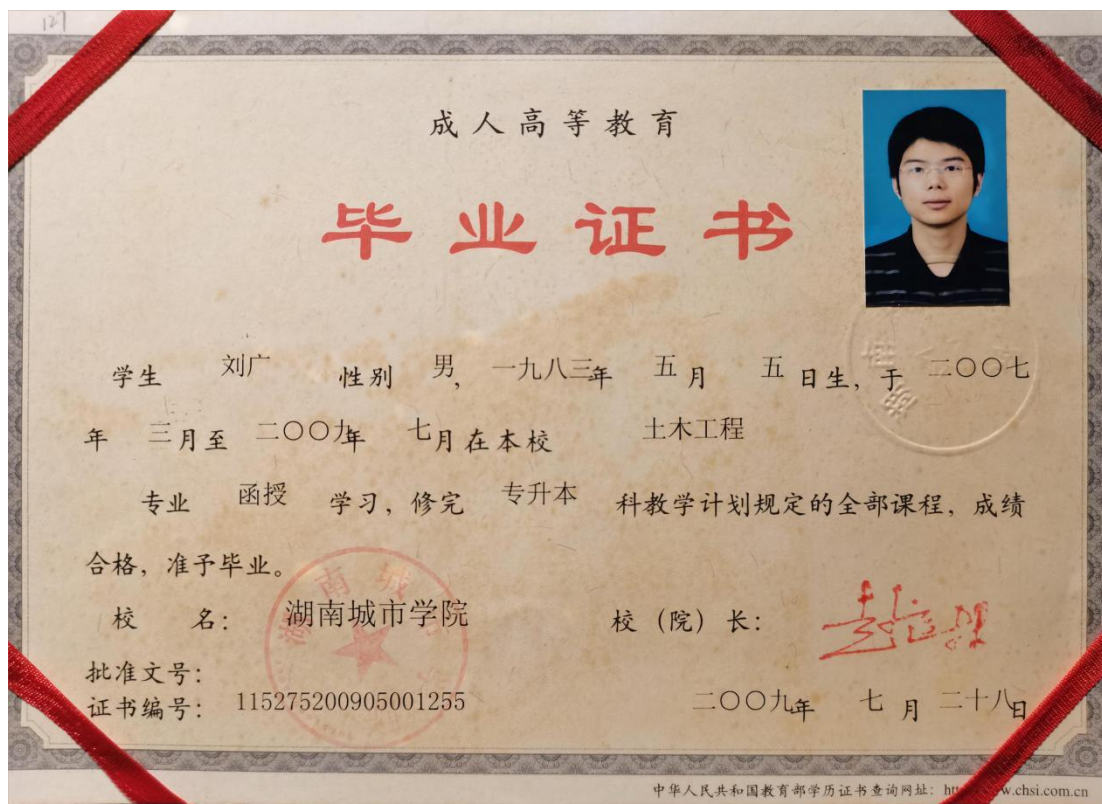 127
成人高等教育
毕业证书
学生 刘广 性别 男, 一九八三年 五月 五日生, 于 二〇〇七
年 三月至 二〇〇九年 七月在本校 土木工程
专业 函授 学习, 修完 专升本 科教学计划规定的全部课程, 成绩
合格, 准予毕业。
校 名: 湖南城市学院 校 (院) 长:
批准文号:
证书编号: 115275200905001255 二〇〇九年 七月 二十八日
中华人民共和国教育部学历证书查询网址: htt w.chsi.com.cn